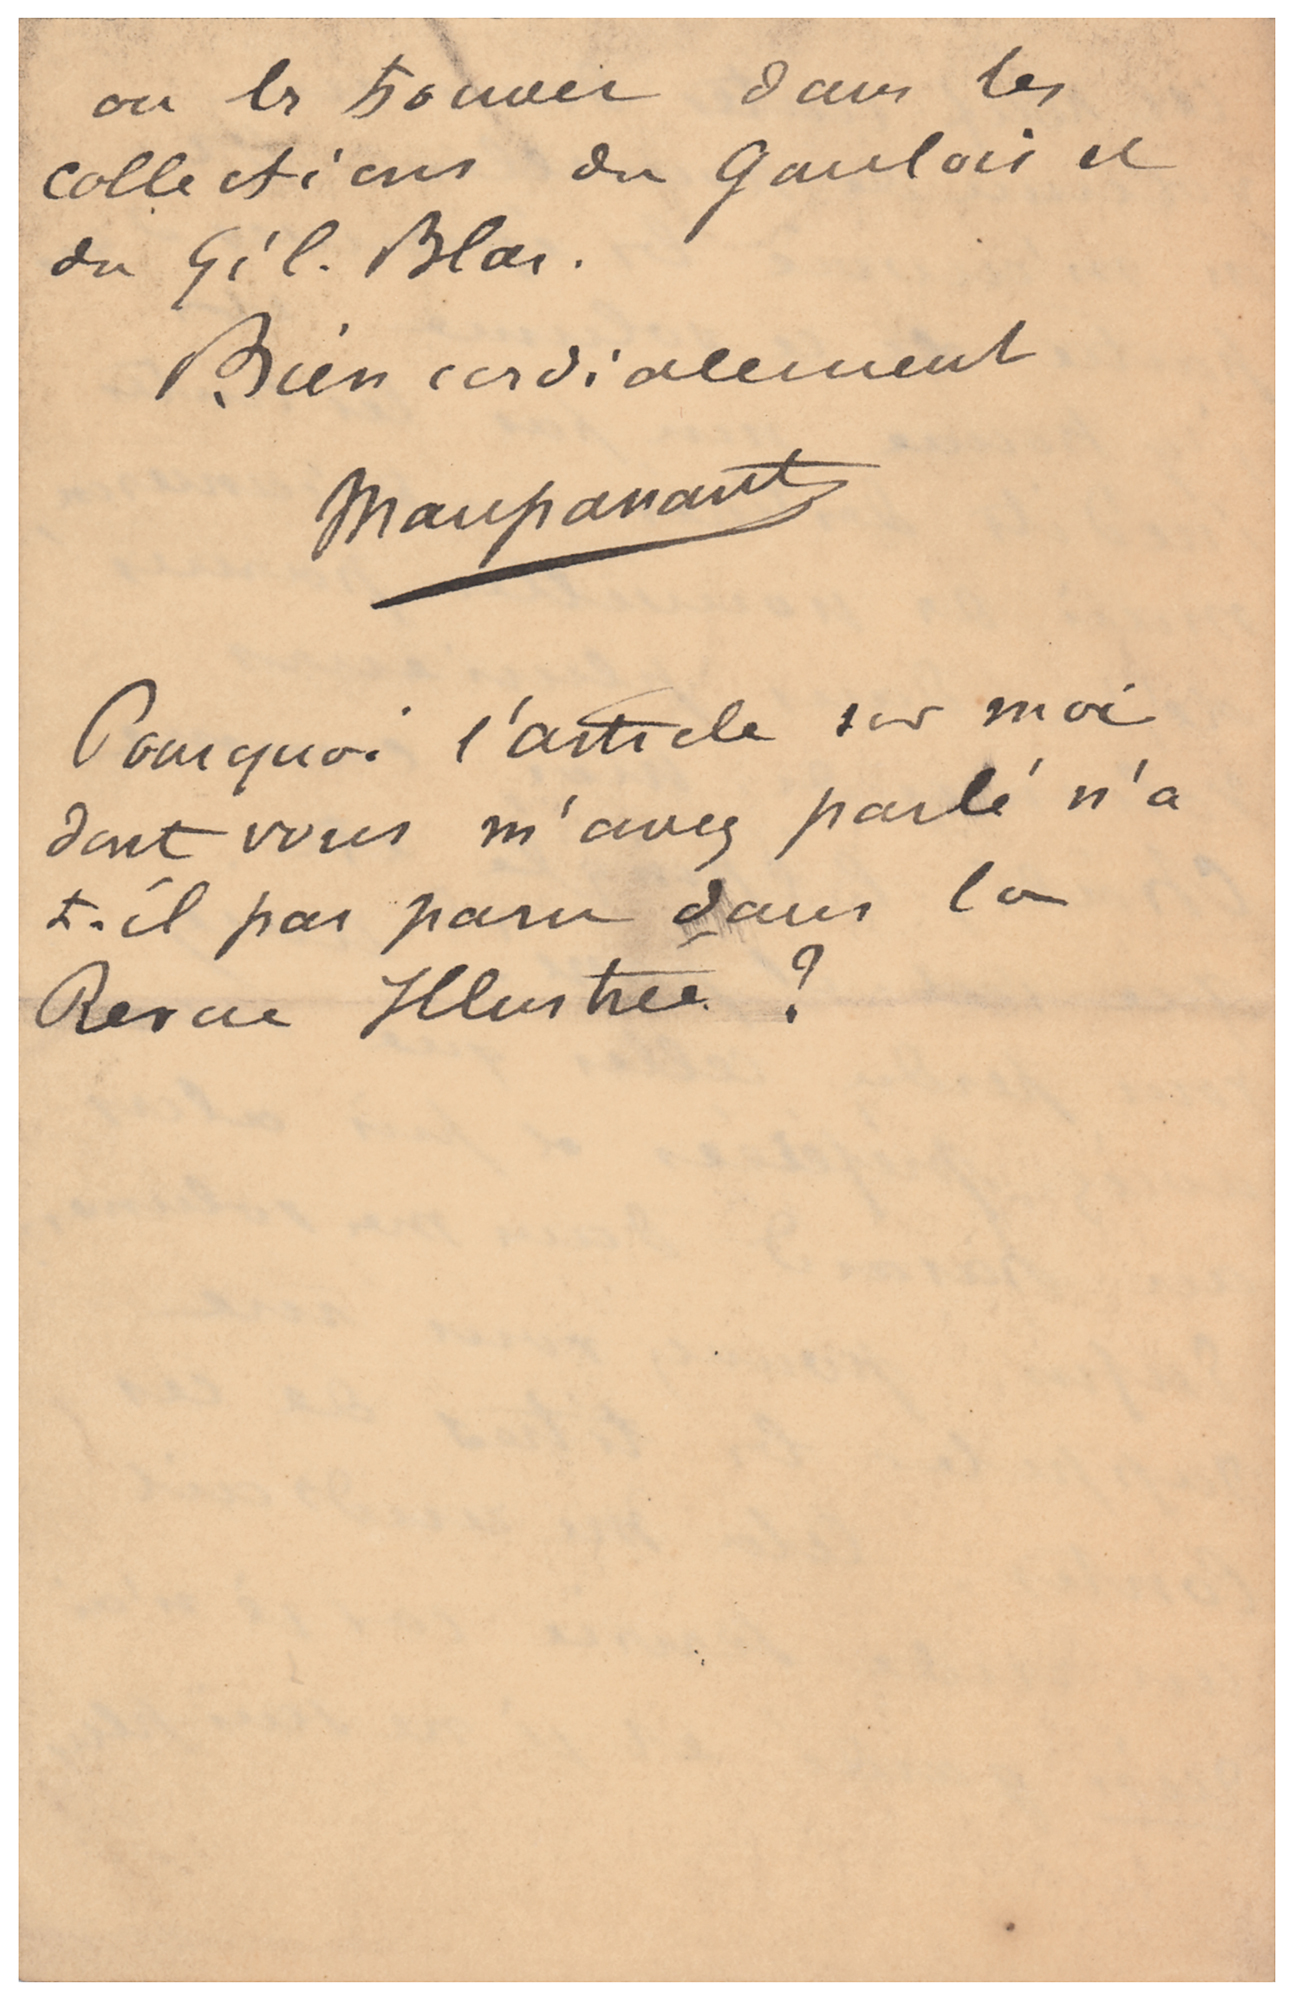 ou les trouver dans les
collections du Gaulois et
du Gil. Blas.
Bien cordialement
Maupassant
Pourquoi l'article sur moi
dont vous m'avez parlé n'a
t-il pas paru dans la
Revue Illustrée ?